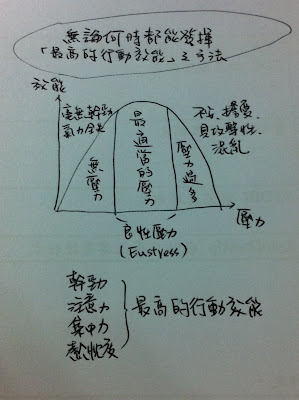 無論何時都能發揮
「最高的行動效能」之方法
效能
毫無幹勁
氣力全失
無壓力
最適當的壓力
壓力過多
不安、擔憂、
具攻擊性、
混亂
壓力
良性壓力
(Eustress)
幹勁
注意力
集中力
熱忱度
最高的行動效能